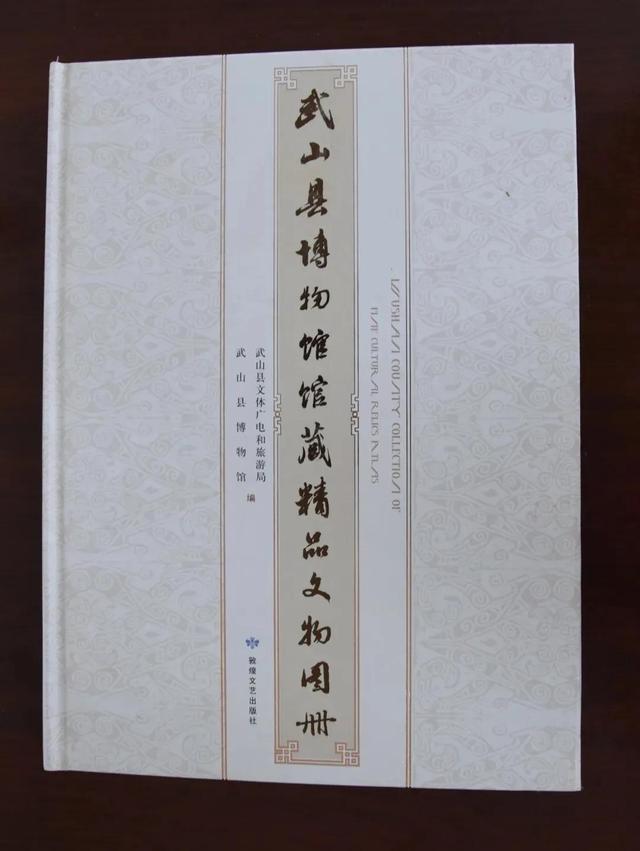 武山县博物馆馆藏精品文物图册
COUNTY COLLECTION OF
CULTURAL RELICS ATLAS
武山县文体广电和旅游局
武山县博物馆
编
敦煌文艺出版社